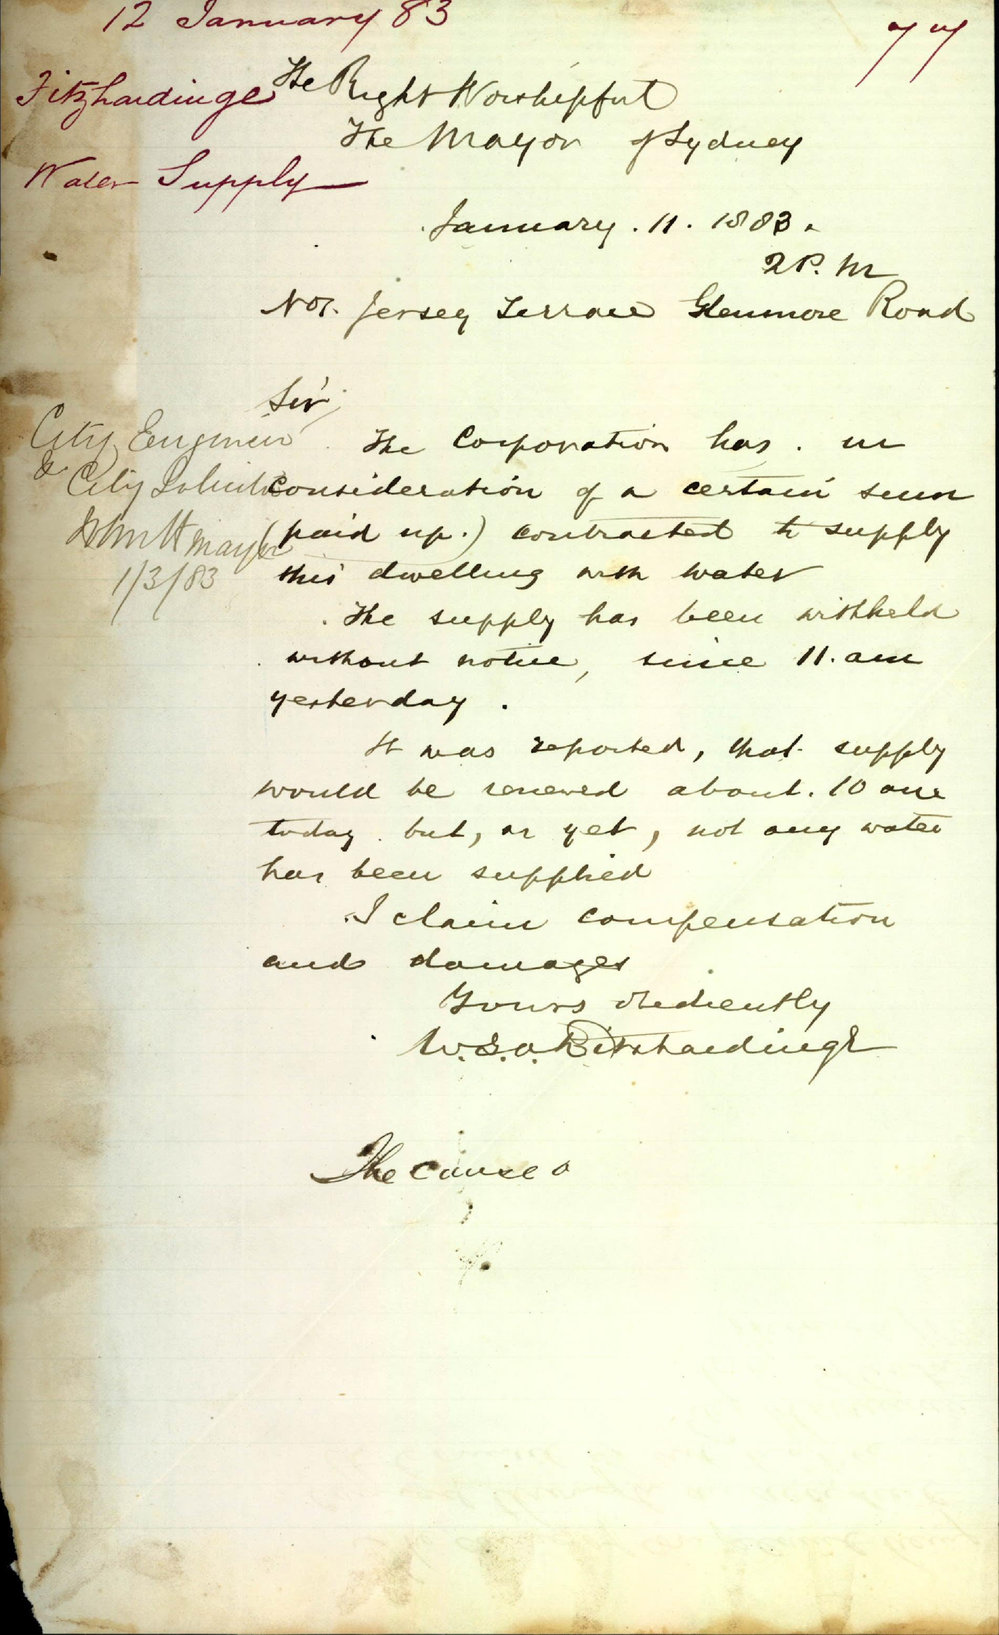 12 January 83
77
Fitzhardinge
Water Supply
The Right Worshipful
The Mayor of Sydney
January. 11. 1883.
2 P. M
No 7. Jersey Terrace Glenmore Road
Sir,
City Engineer
& City Solicitor
Mayor
1/3/83
The Corporation has. in
consideration of a certain sum
(paid up.) contracted to supply
this dwelling with water
The supply has been withheld
without notice, since 11. am
yesterday.
It was reported, that supply
would be renewed about. 10 am
today but, as yet, not any water
has been supplied
I claim compensation
and damages
Yours obediently
Fitzhardinge
The cause o